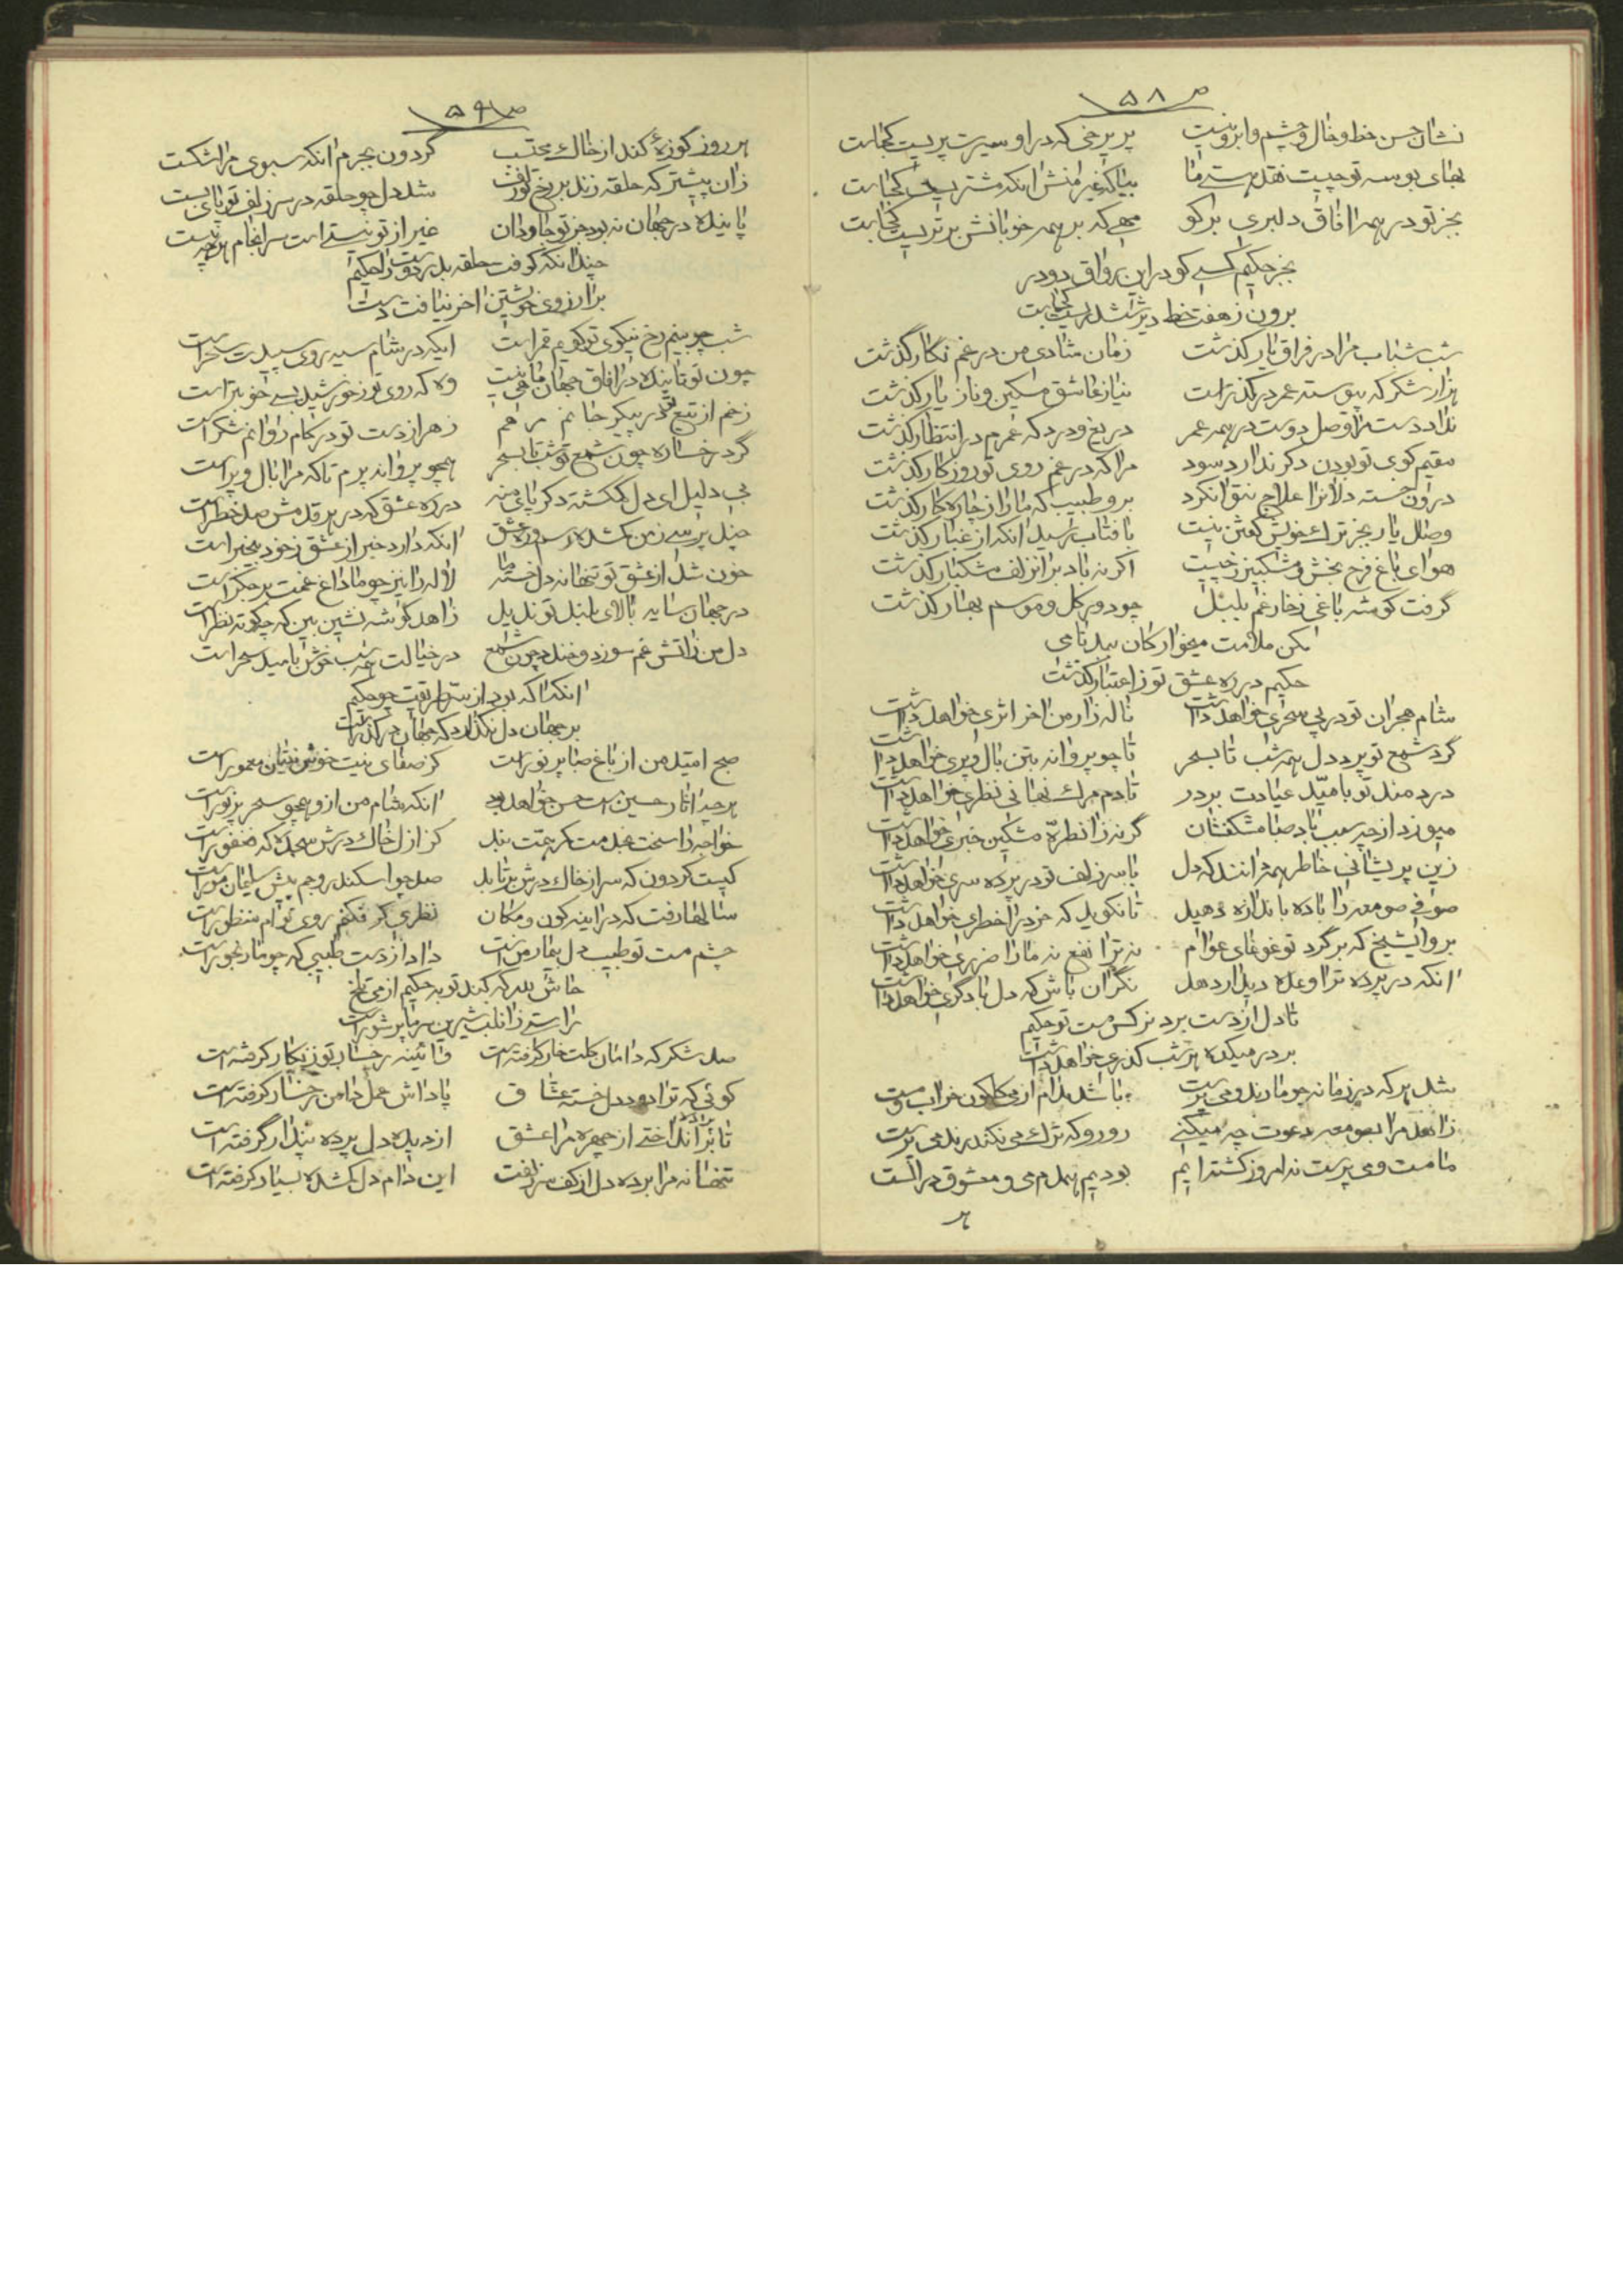 ص ۵۸
نشان حسن خط و خال و چشم و ابرو نیست پری رخی که در او سیرت پریست کجاست
بهای بوسه تو چیست نقد هستی ما بیا که غیر منش انکه مشتریست کجاست
بجز تو در همه افاق دلبری برکو مهی که بر همه خوبانش برتریست کجاست
بجز حکیم کسی کو در این رواق دودر
برون ز هفت خط دیر ششدریست کجاست
شب شباب مرا در فراق یار کذشت زمان شادی من در غم نکار گذشت
هزار شکر که پیوسته عمر در کذر است نیاز عاشق مسکین و ناز یار کذشت
نداد دست مرا وصل دوست در همه عمر دریغ و درد که عمرم در انتظار کذشت
مقیم کوی تو بودن دکر ندارد سود مرا که در غم روی تو روزکار کذشت
درون خسته دلانرا علاج نتوانکرد برو طبیب که ما را ز چاره کار کذشت
وصال یار بجز ترک خویش کفتن نیست بافتاب رسید انکه از غبار کذشت
هوای باغ فرح بخش و مشکبیز ز چیست اکر نه باد بر انزلف مشکبار کذشت
گرفت کوشه باغی ز خار غم بلبل چو دور کل و موسم بهار کذشت
مکن ملامت میخوارکان ببدنامی
حکیم در ره عشق تو ز اعتبار کذشت
شام هجران تو در پی سحری خواهد داشت ناله زار من اخر اثری خواهد داشت
گرد شمع تو پرد دل همه شب تا بسحر تا چو پروانه بتن بال و پری خواهد داشت
دردمند تو بامید عیادت بر در تا دم مرک نهانی نظری خواهد داشت
میوزد از چه سبب باد صبا مشکفشان گرنه زانطره مشکین خبری خواهد داشت
زین پریشانی خاطر همه دانند که دل با سر زلف تو در پرده سری خواهد داشت
صوفی صومعه را باده باندازه دهید تا نکوید که خرد را خطری خواهد داشت
برو ایشیخ که بر گرد تو غوغای عوام نه ترا نفع نه ما را ضرری خواهد داشت
انکه در پرده ترا وعده دیدار دهد نگران باش که دل با دگری خواهد داشت
تا دل از دست برد نرکس مست تو حکیم
بر در میکده هر شب کذری خواهد داشت
شد هر که در زمانه چو ما رند و می پرست باشد مدام از می کلکون خراب و مست
زاهد مرا بصومعه دعوت چه میکنی رو رو که ترک می نکند رند می پرست
ما مست و می پرست نه امروز کشته ایم بودیم همدم می و معشوق در الست
هر
ص ۵۹
هر روز کوزهٔ کند از خاک محتسب گردون بجرم انکه سبوی مرا شکست
زان پیشتر که حلقه زند بر رخ تو زلف شد دل چو حلقه در سر زلف تو پای بست
پاینده در جهان نه بود جز تو جاودان غیر از تو نیستی است سرانجام هر چه هست
چندانکه کوفت حلقه بدر دوست را حکیم
بر ارزوی خویشتن اخر نیافت دست
شب چو بینم رخ نیکوی تو کویم قمر است ایکه در شام سیه روی سپیدت سحر است
چون تو تابنده در افاق جهان ماهی نیست وه که روی تو ز خورشید بسی خوبتر است
زخم از تیغ تو در پیکر جانم مرهم زهر از دست تو در کام روانم شکر است
گرد رخساره چون شمع تو شب تا بسحر همچو پروانه پرم تا که مرا بال و پر است
بی دلیل ای دل کمکشته دکر پای منه در ره عشق که در هر قدمش صد خطر است
چند پرسی ز من کمشده رسم و ره عشق انکه دارد خبر از عشق ز خود بیخبر است
خون شد از عشق تو تنها نه دل خسته ما لاله را نیز چو ما داغ غمت بر جکر است
در جهان سایه بالای بلند تو ندید زاهد کوشه نشین بین که چه کوته نظر است
دل من زاتش غم سوزد و خندد چون شمع در خیالت همه شب خوش بامید سحر است
انکه اکه بود از سر طریقت چو حکیم
بر جهان دل نکذارد که جهان در کذر است
صبح امید من از باغ صبا پر نور است کز صفای نیت خوش نیتان معمور است
هر چه اثار حسین است حسن خواهد بود انکه شام من از و همچو سحر پر نور است
خواجه راسخت عبد مت کرچت بیند کز ازل خاک درش سجده که فغفور است
کیست کردون که سر از خاک درش برتابد صد چو اسکندر و جم پیش سلیمان مور است
سالها رفت که در اینه کون و مکان نظری کر فکنم روی توام منظور است
چشم مست تو طبیب دل بیمار منست داد از دست طبیبی که چو ما رنجور است
حاش لله که کند توبه حکیم از می تلخ
راستی زانلب شیرین سر ما پر شور است
صد شکر که دامان کلت خار کرفته است و آئینه رخسار تو زنکار کرفته است
کوئی که ترا دود دل خسته عشاق پاداش عمل دامن رخسار کرفته است
تا پرده برانداختی از چهره مرا عشق از دیده دل پرده پندار گرفته است
تنها نه مرا برده دل از کف سر زلفت این دام دل کمشده بسیار کرفته است